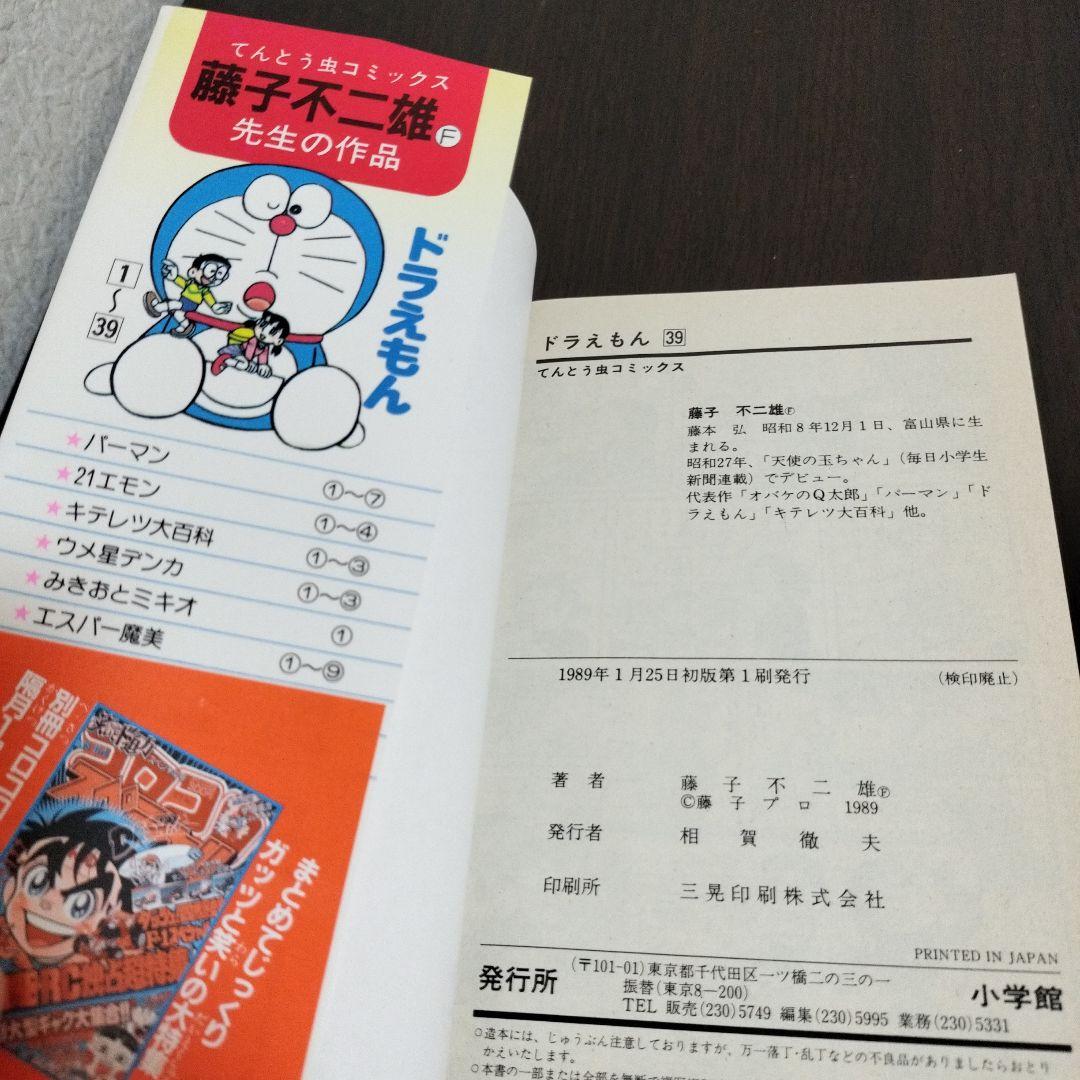 てんとう虫コミックス
藤子不二雄Ⓕ
先生の作品
ドラえもん
1
〜
39
★パーマン ①〜⑦
★21エモン ①〜④
★キテレツ大百科 ①〜③
★ウメ星デンカ ①〜③
★みきおとミキオ ①
★エスパー魔美 ①〜⑨
別冊コロコロ
隔月
コロコロ
まとめてじっくり
ガッツと笑いの大特集
ドラえもん 39
てんとう虫コミックス
藤子 不二雄Ⓕ
藤本 弘 昭和8年12月1日、富山県に生
まれる。
昭和27年、「天使の玉ちゃん」(毎日小学生
新聞連載)でデビュー。
代表作「オバケのQ太郎」「パーマン」「ド
ラえもん」「キテレツ大百科」他。
1989年1月25日初版第1刷発行 (検印廃止)
著者 藤子不二雄Ⓕ
©藤子プロ 1989
発行者 相賀徹夫
印刷所 三晃印刷株式会社
PRINTED IN JAPAN
発行所 (〒101-01)東京都千代田区一ツ橋二の三の一
振替(東京8—200)
TEL 販売(230)5749 編集(230)5995 業務(230)5331
小学館
○造本には、じゅうぶん注意しておりますが、万一落丁・乱丁などの不良品がありましたらおとり
かえいたします。
○本書の一部または全部を無断で